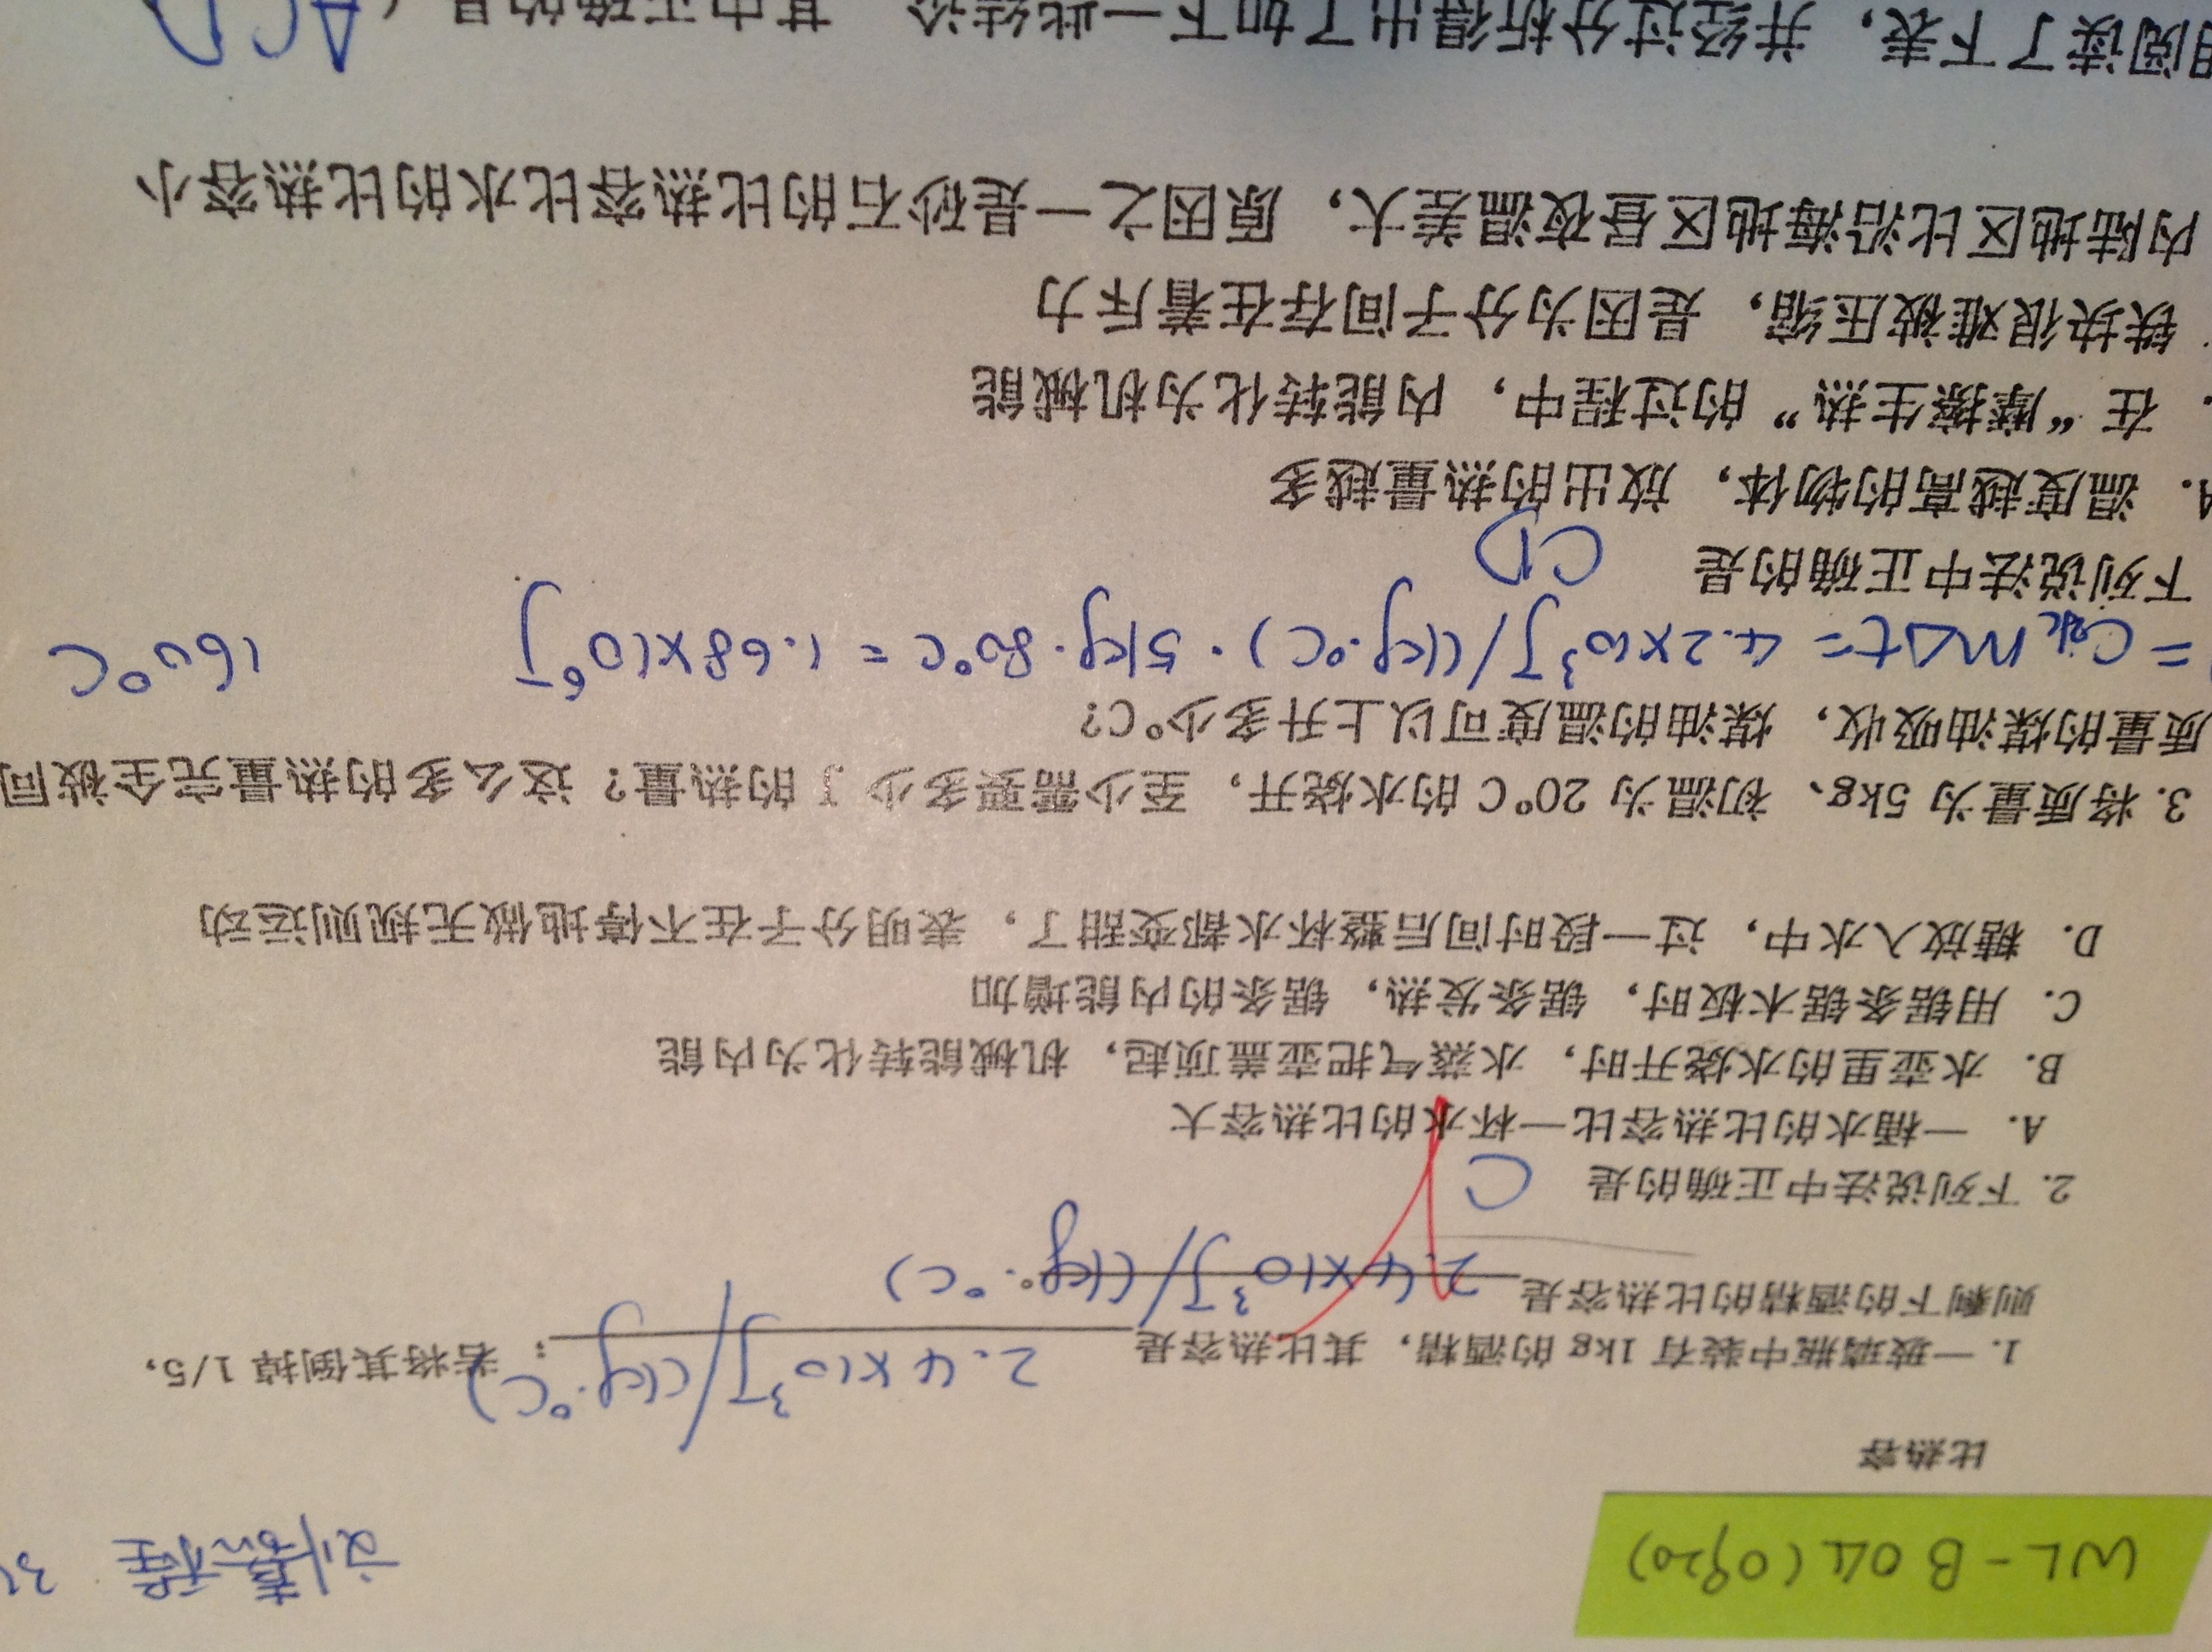 WL-B04(0920)
刘嘉程
比热容
1. 一玻璃瓶中装有 1kg 的酒精，其比热容是 2.4×10³J/(kg·°C) ；若将其倒掉 1/5，
则剩下的酒精的比热容是 2.4×10³J/(kg·°C)
2. 下列说法中正确的是 C
A. 一桶水的比热容比一杯水的比热容大
B. 水壶里的水烧开时，水蒸气把壶盖顶起，机械能转化为内能
C. 用锯条锯木板时，锯条发热，锯条的内能增加
D. 糖放入水中，过一段时间后整杯水都变甜了，表明分子在不停地做无规则运动
3. 将质量为 5kg、初温为 20°C 的水烧开，至少需要多少 J 的热量？这么多的热量完全被同
质量的煤油吸收，煤油的温度可以上升多少°C？
= C水 m△t = 4.2×10³J/(kg·°C)·5kg·80°C = 1.68×10⁶J 160°C
下列说法中正确的是 CD
A. 温度越高的物体，放出的热量越多
. 在“摩擦生热”的过程中，内能转化为机械能
铁块很难被压缩，是因为分子间存在着斥力
内陆地区比沿海地区昼夜温差大，原因之一是砂石的比热容比水的比热容小
阅读了下表，并经过分析得出了如下一些结论，其中正确的是（ ACD